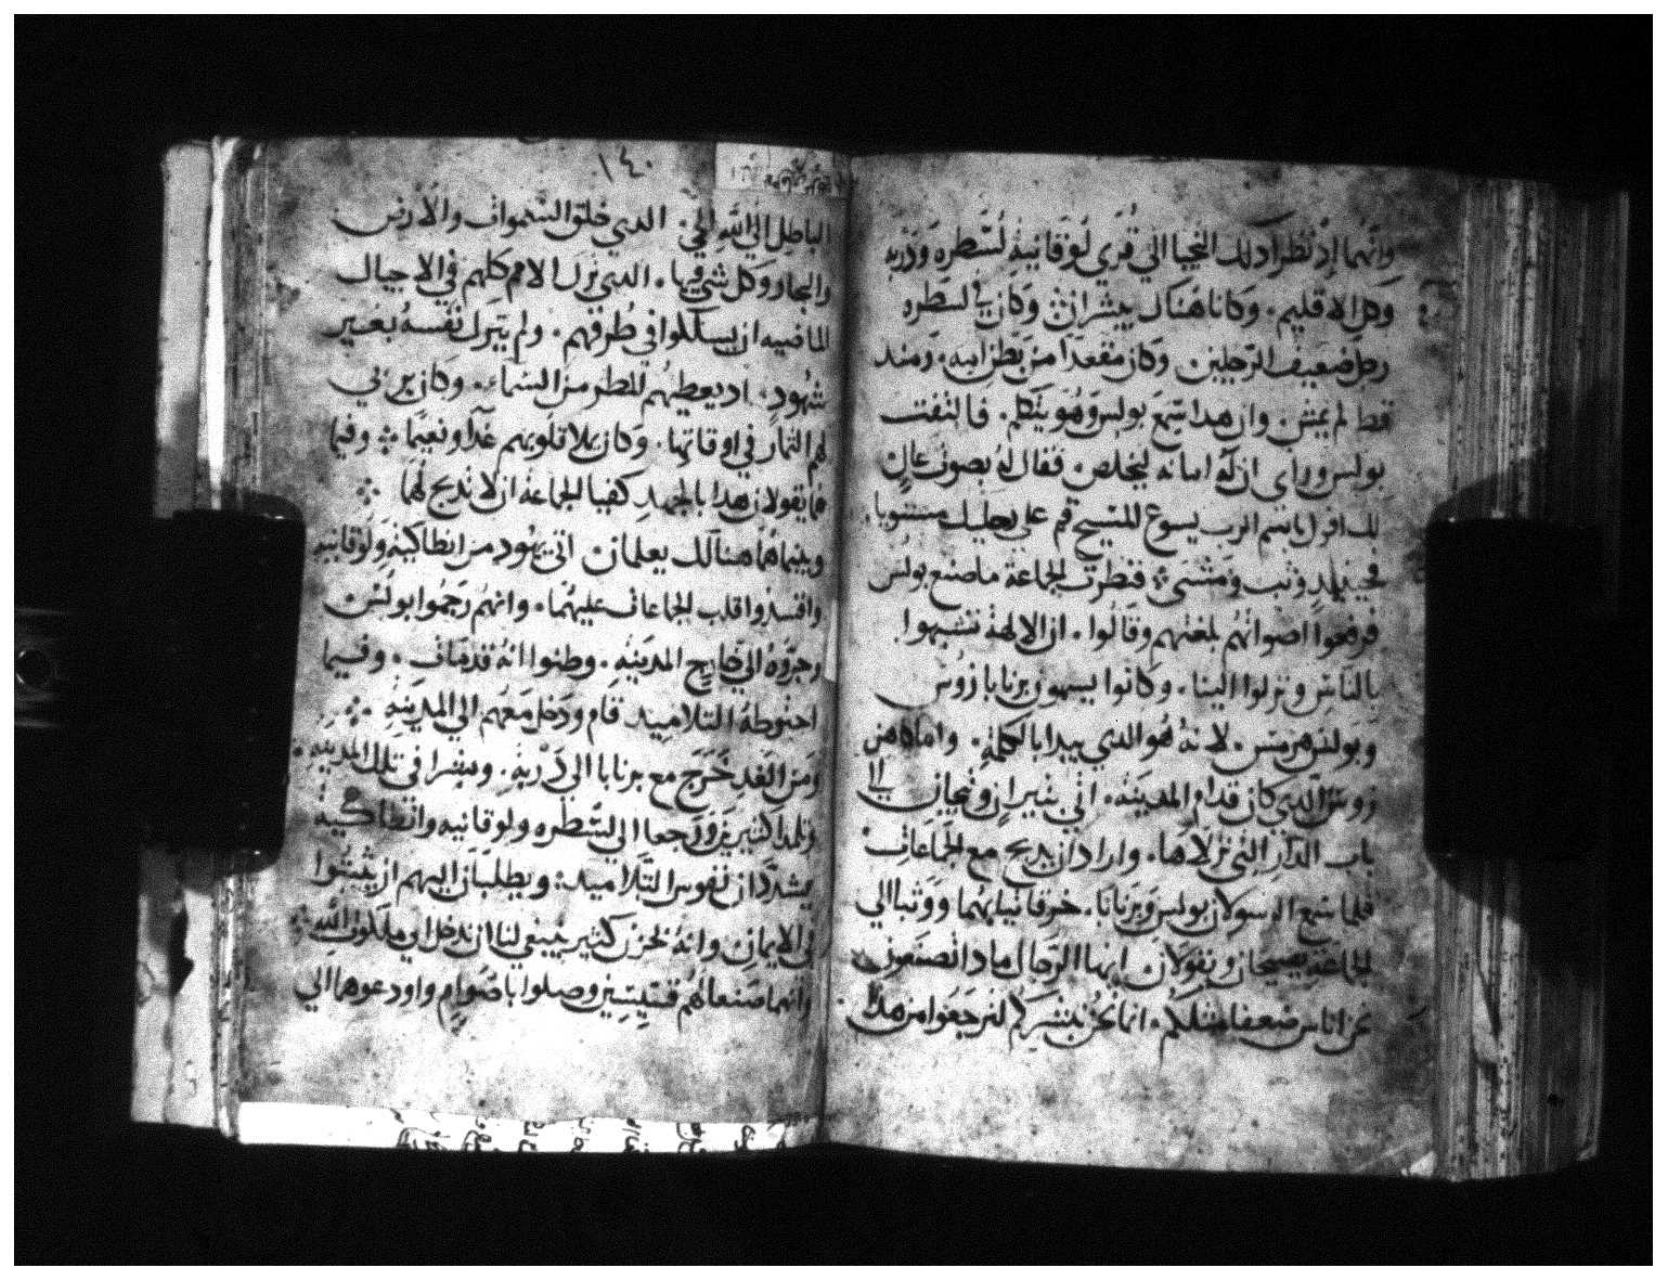 وانهما اد نظرا دلك التجيا الي قري لوقانيه لسطره ودربه
وكل الاقليم. وكانا هناك يبشران وكان في لسطره
رجل ضعيف الرجلين وكان مقعدا من بطن امه. ومند
قط لم يمش. وان هدا سمع بولس وهو يتكلم. فالتفت
بولس وراي ان له امانه ليخلص. فقال له بصوت عال
لك اقول باسم الرب يسوع المسيح قم علي رجليك مستويا.
فحينيد وثب ومشي فنظرت الجماعة ما صنع بولس
فرفعوا اصواتهم بلغتهم وقالوا. ان الالهة تشبهوا
بالناس ونزلوا الينا. وكانوا يسمون برنابا زوس
وبولس هرمس. لانه هو الدي يبدا بالكلمة. واما كاهن
زوس الدي كان قدام المدينه. اتي بثيران وتيجان الي
باب الدار التي نزلاها. واراد ان يدبح مع الجماعات
فلما سمع الرسولان بولس وبرنابا. خرقا ثيابهما ووثبا الي
الجماعة يصيحان ويقولان ايها الرجال مادا تصنعون
نحن اناس ضعفا مثلكم. انما نحن نبشركم لترجعوا من هدا
١٤٠
الباطل الي الله الحي. الدي خلق السموات والارض
والبحار وكل شي فيها. الدي ترك الامم كلهم في الاجيال
الماضيه ان يسلكوا في طرقهم. ولم يترك نفسه بغير
شهود. اد يعطيهم المطر من السماء. وكان يربي
لهم الثمار في اوقاتها. وكان يملا قلوبهم غدآ ونعيما وفيما
هما يقولان هدا بالجهد كفيا الجماعة ان لا تدبح لهما
وبينما هما هنالك يعلمان اتي يهود من انطاكية ولوقانيه
وافسدوا قلب الجماعات عليهما. وانهم رجموا بولس
وجروه الي خارج المدينه. وظنوا انه قد مات. وفيما
احتوطه التلاميد قام ودخل معهم الي المدينه
ومن الغد خرج مع برنابا الي دربه. وبشرا في تلك المدينه.
وتلمدا كثيرين ورجعا الي لسطره ولوقانيه وانطاكية
يشددان نفوس التلاميد. ويطلبان اليهم ان يثبتوا
في الايمان وانه بحزن كثير ينبغي لنا ان ندخل الي ملكوت الله
وانهما صنعا لهم قسيسين وصلوا باصوام واودعوهما الي